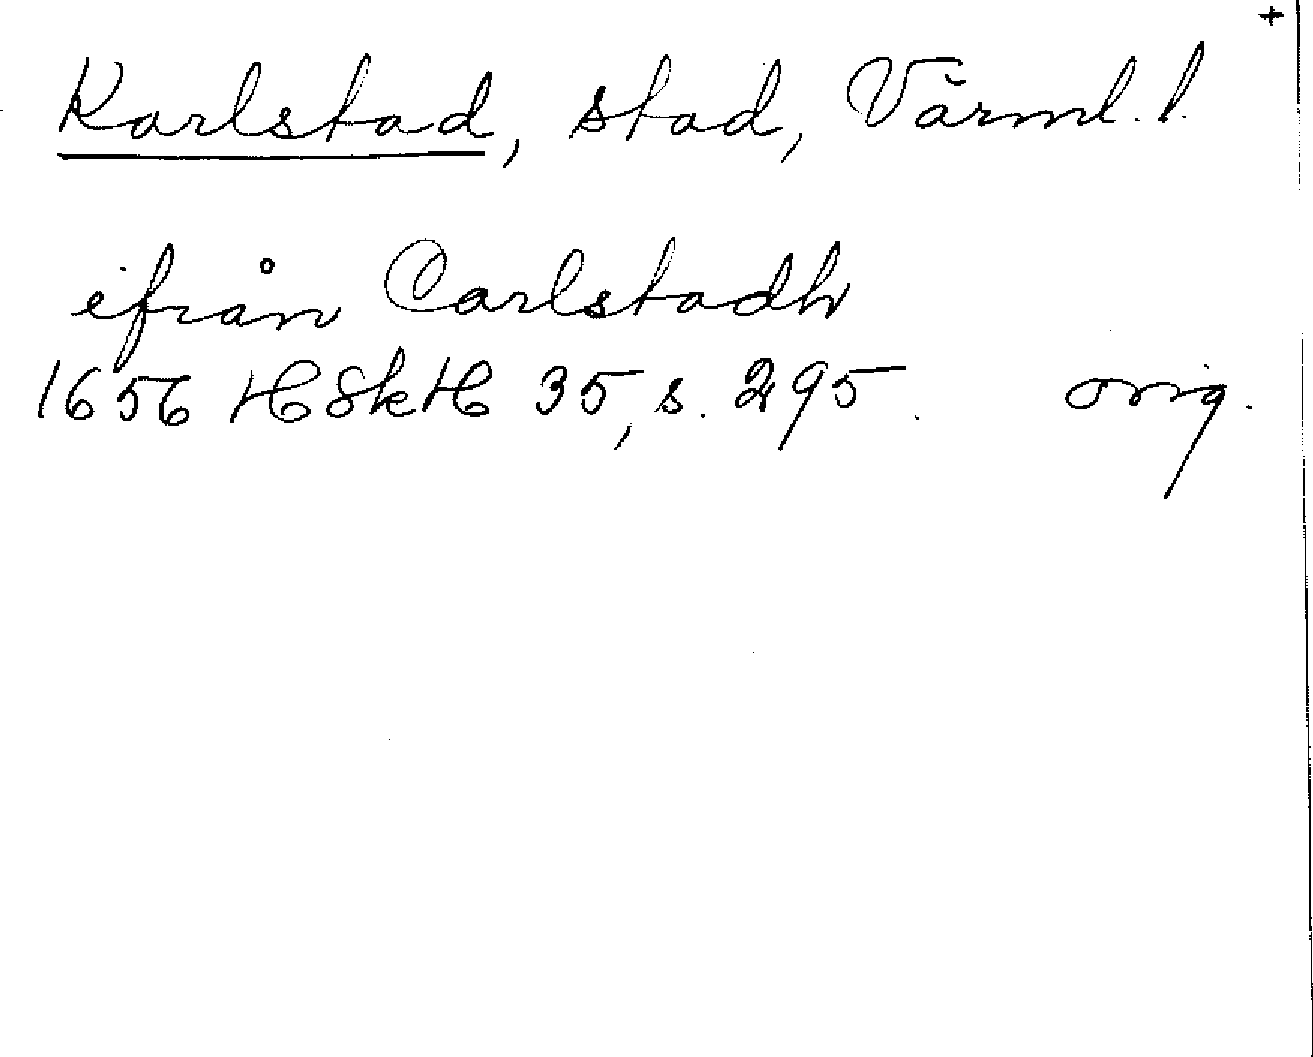 +
Karlstad, stad, Värml. l.
ifrån Carlstadh
1656 HSkH 35, s. 295. orig.